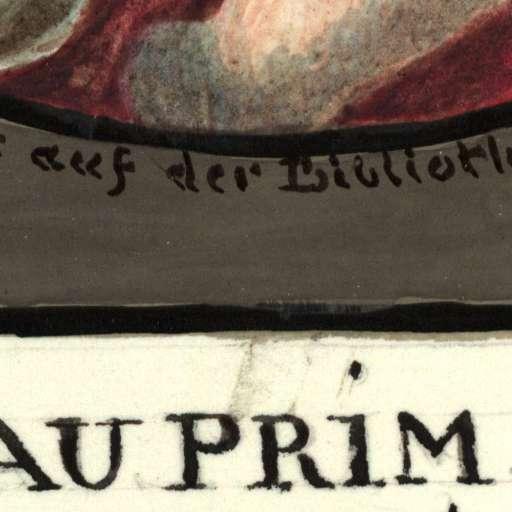 auf der Biblioth
AU PRIM.